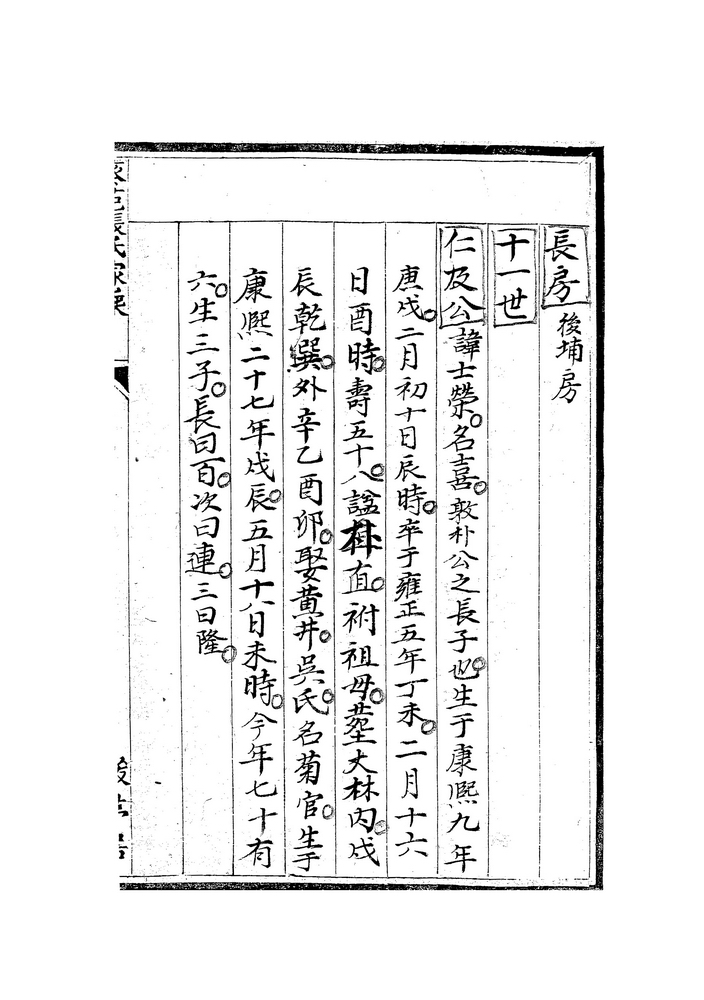 長房 後埔房
十一世
仁及公諱士榮。名喜。敦朴公之長子也。生于康熙九年
庚戌。二月初十日辰時。卒于雍正五年丁未。二月十六
日酉時。壽五十八。諡直。祔祖母。塟大林內。戌
辰乾巽。外辛乙酉卯。娶黄井。吳氏。名菊官。生于
康熙二十七年戊辰。五月十八日未時。今年七十有
六。生三子。長曰百。次曰連。三曰隆。
張氏家乘